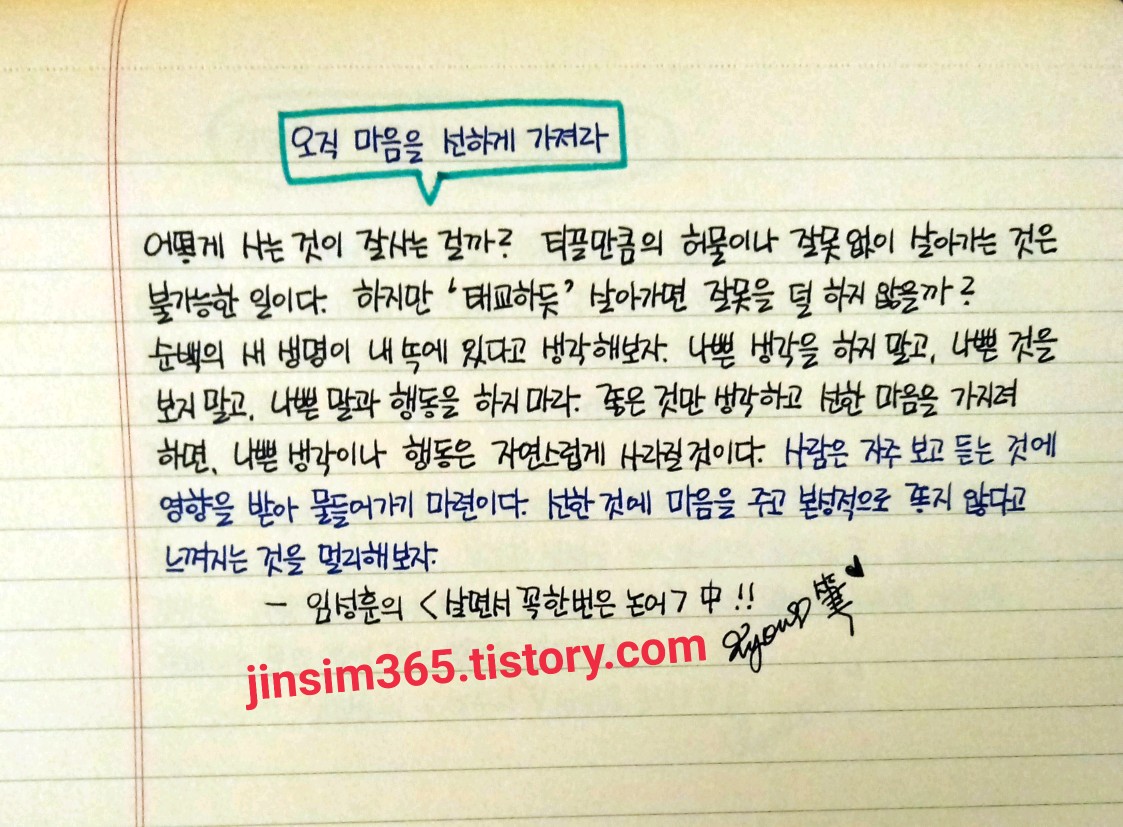 오직 마음을 선하게 가져라
어떻게 사는 것이 잘사는 걸까? 티끌만큼의 허물이나 잘못없이 살아가는 것은
불가능한 일이다. 하지만 '태교하듯' 살아가면 잘못을 덜 하지 않을까?
순백의 새 생명이 내 뜩에 있다고 생각해보자. 나쁜 생각을 하지 말고, 나쁜 것을
보지 말고, 나쁜 말과 행동을 하지 마라. 좋은 것만 생각하고 선한 마음을 가지려
하면, 나쁜 생각이나 행동은 자연스럽게 사라질 것이다. 사람은 자주 보고 듣는 것에
영향을 받아 물들어가기 마련이다. 선한 것에 마음을 주고 본성적으로 좋지 않다고
느껴지는 것을 멀리해보자.
- 임성훈의 <살면서 꼭한번은 논어> 中 !!
筆
jinsim365.tistory.com